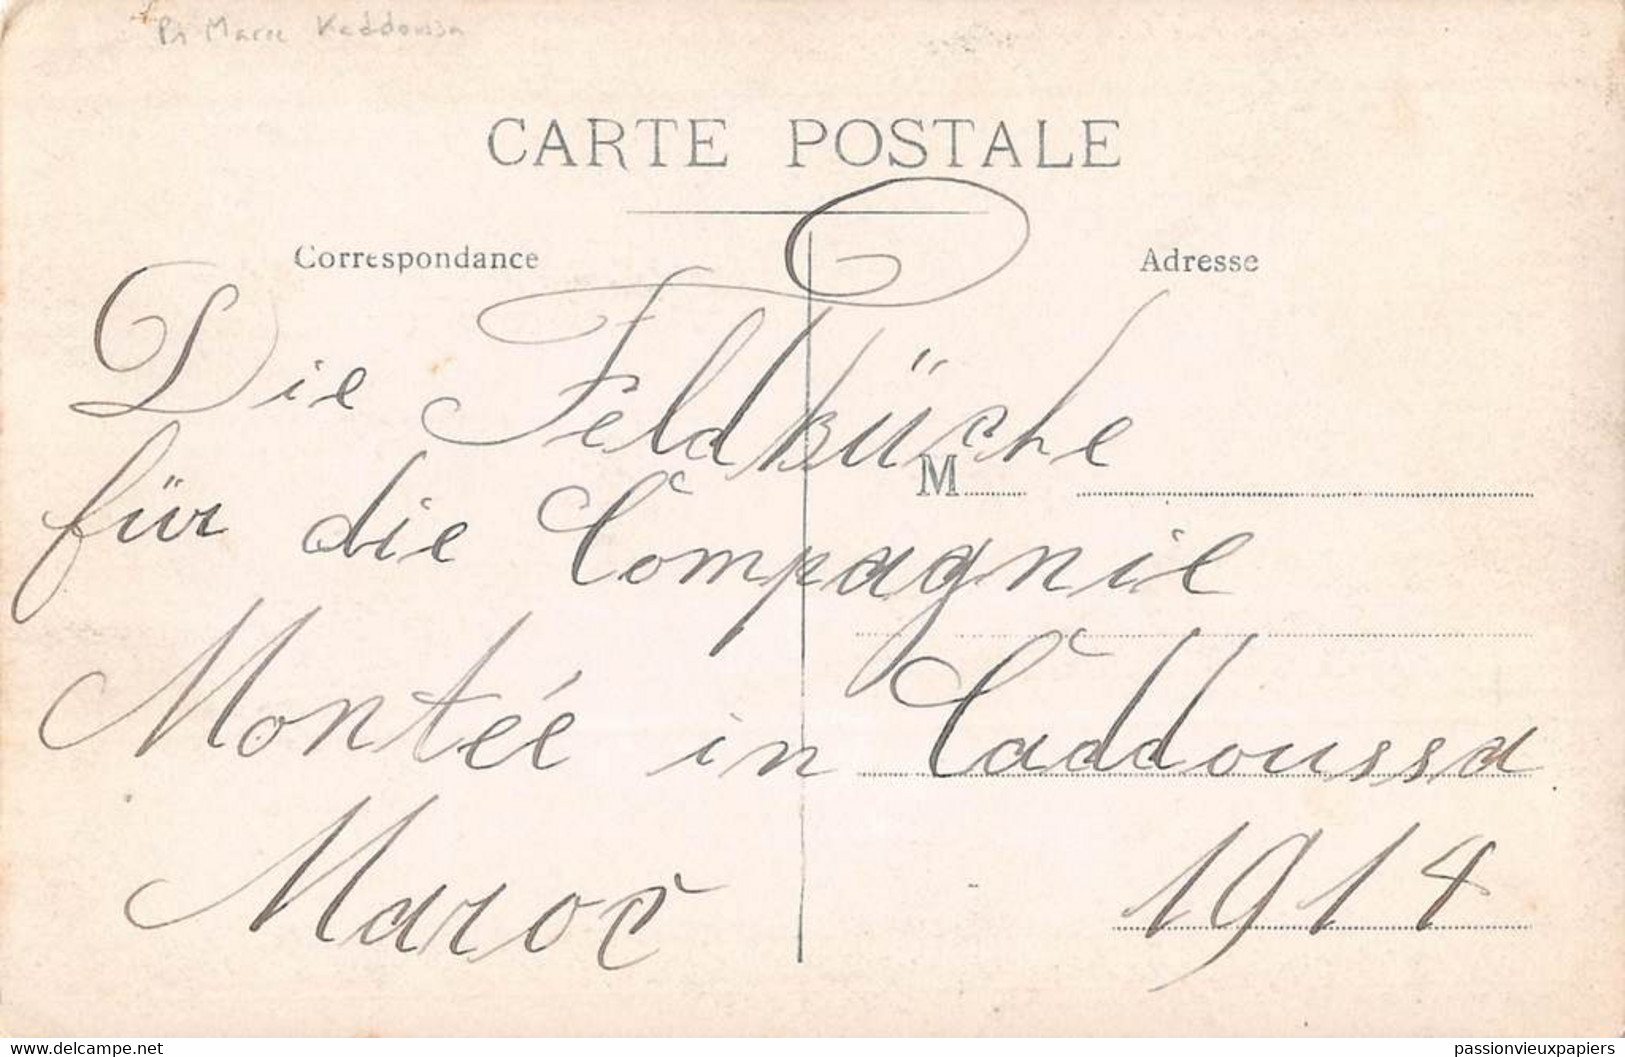 Maroc Keddoussa
CARTE POSTALE
Correspondance
Adresse
Die Feldküche
M
für die Compagnie
Montée in Caddoussa
Maroc 1914
delcampe.net
passionvieuxpapiers